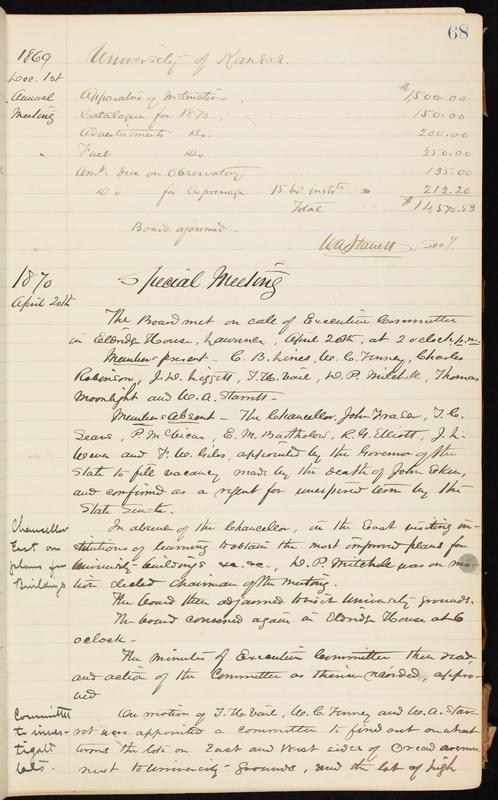 68
1869
Dec. 1st
Annual
Meeting
University of Kansas.
Apparatus of Instruction $1,500.00
Catalogue for 1870 150.00
Advertisements Do. 200.00
Fuel Do. 250.00
Amt. due on Observatory 135.00
Do for 212.20
Total $14,570.53
Board adjourned
W.A. Starrett, Sec'y.
1870
April 20th
Special Meeting
The Board met on call of Executive Committee
in Eldridge House, Lawrence, April 20th, at 2 oclock p.m.
Members present - C. B. Lines, W. C. Tenney, Charles
Robinson, J. D. Liggett, T. H. Vail, D. P. Mitchell, Thomas
Moonlight and W. A. Starrett -
Members Absent - The Chancellor, John Fraser, T. C.
Sears, P. McVicar, E. M. Bartholow, R. G. Elliott, J. L.
Wever and F. W. Giles, appointed by the Governor of the
State to fill vacancy made by the death of John
and confirmed as a regent for unexpired term by the
State Senate.
Chancellor
East on
plans for
Buildings
In absence of the Chancellor, in the East visiting in-
stitutions of learning to obtain the most improved plans for
University buildings &c. &c., D. P. Mitchell was on mo-
tion elected Chairman of the meeting.
The board then adjourned to visit University grounds.
The board convened again in Eldridge House at 6
oclock -
The minutes of Executive Committee then read,
and action of the Committee as therein recorded, appro-
ved
Committee
to inves-
tigate
lots.
On motion of T. H. Vail, W. C. Tenney and W. A. Star-
rett were appointed a Committee to find out on what
terms the lots on East and West sides of Oread avenue
next to University grounds, and the lot of high